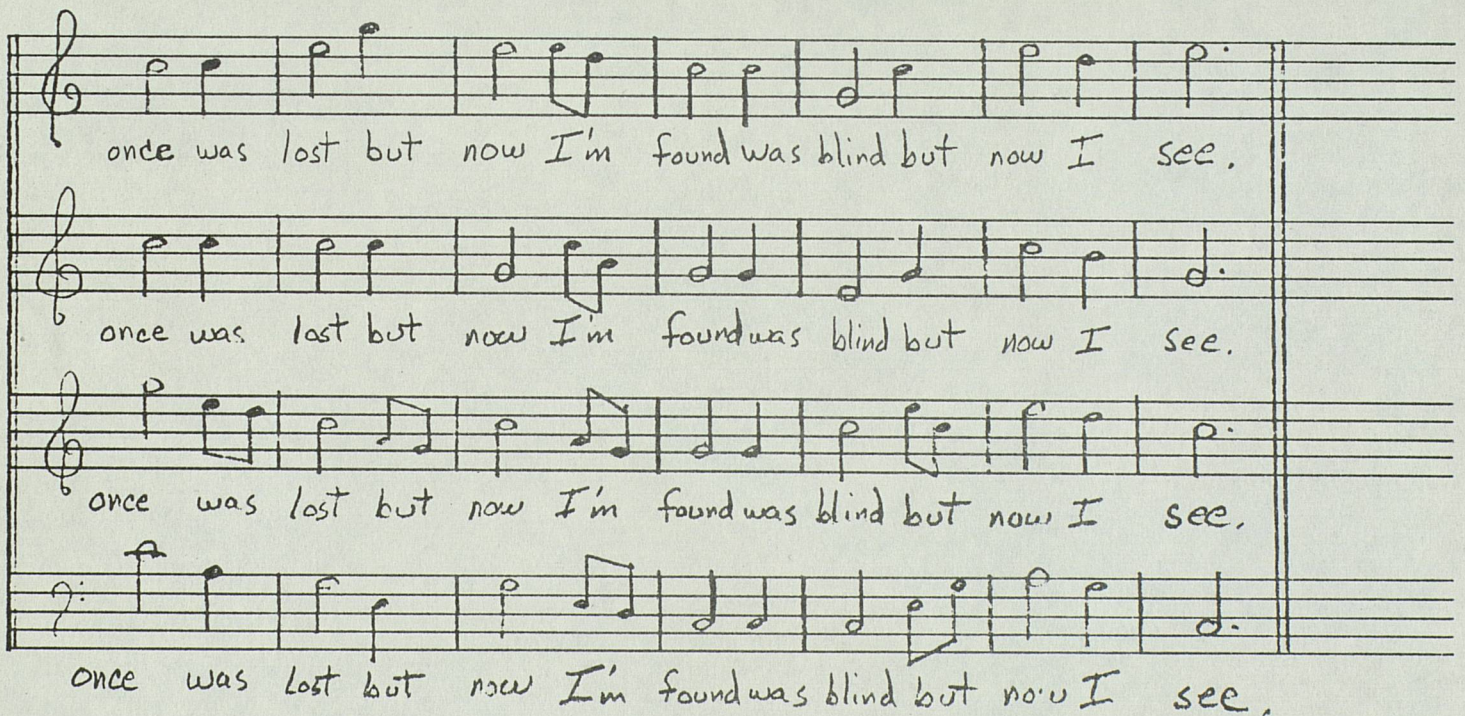 once was lost but now I'm found was blind but now I see.
once was lost but now I'm found was blind but now I see.
once was lost but now I'm found was blind but now I see.
once was lost but now I'm found was blind but now I see.